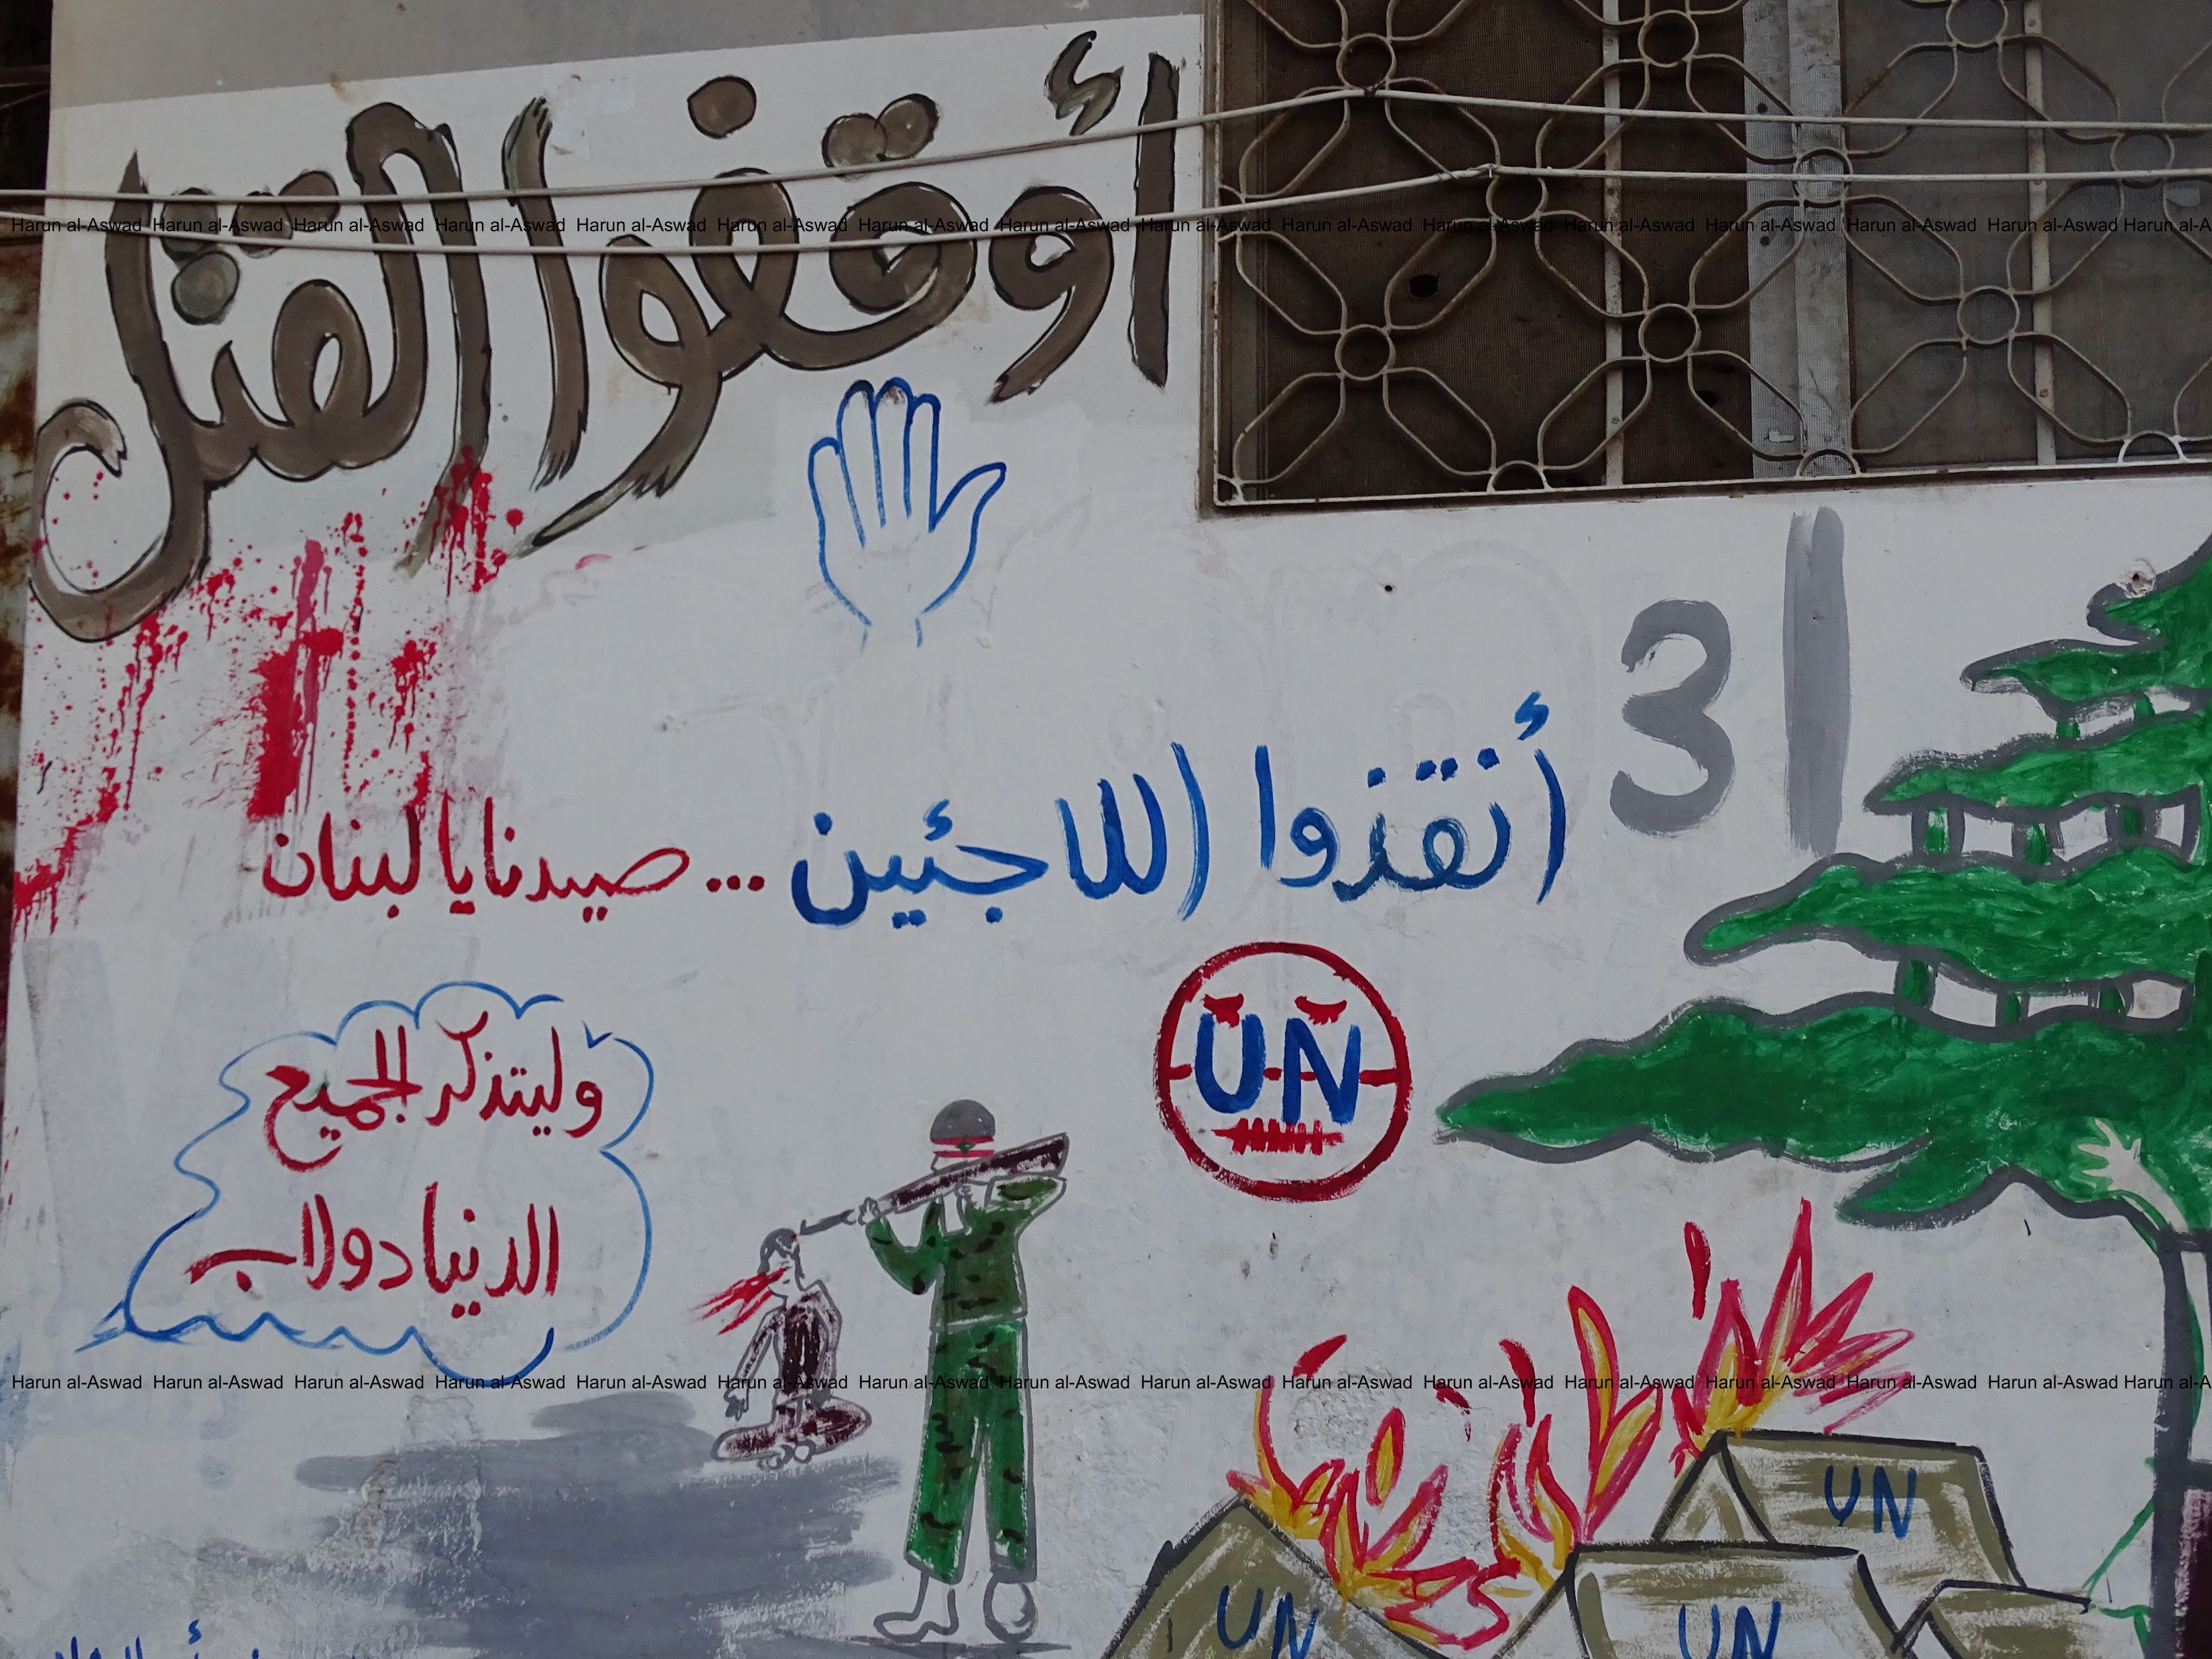 Harun al-Aswad Harun al-Aswad Harun al-Aswad Harun al-Aswad Harun al-Aswad Harun al-Aswad Harun al-Aswad Harun al-Aswad Harun al-Aswad Harun al-Aswad Harun al-Aswad Harun al-Aswad Harun al-Aswad Harun al-Aswad Harun al-Aswad Harun al-A
أوقفوا القتل
31
أنقذوا اللاجئين ... صيدنايا لبنان
UN
وليتذكر الجميع
الدنيا دولاب
Harun al-Aswad Harun al-Aswad Harun al-Aswad Harun al-Aswad Harun al-Aswad Harun al-Aswad Harun al-Aswad Harun al-Aswad Harun al-Aswad Harun al-Aswad Harun al-Aswad Harun al-Aswad Harun al-Aswad Harun al-Aswad Harun al-Aswad Harun al-A
UN
UN
UN